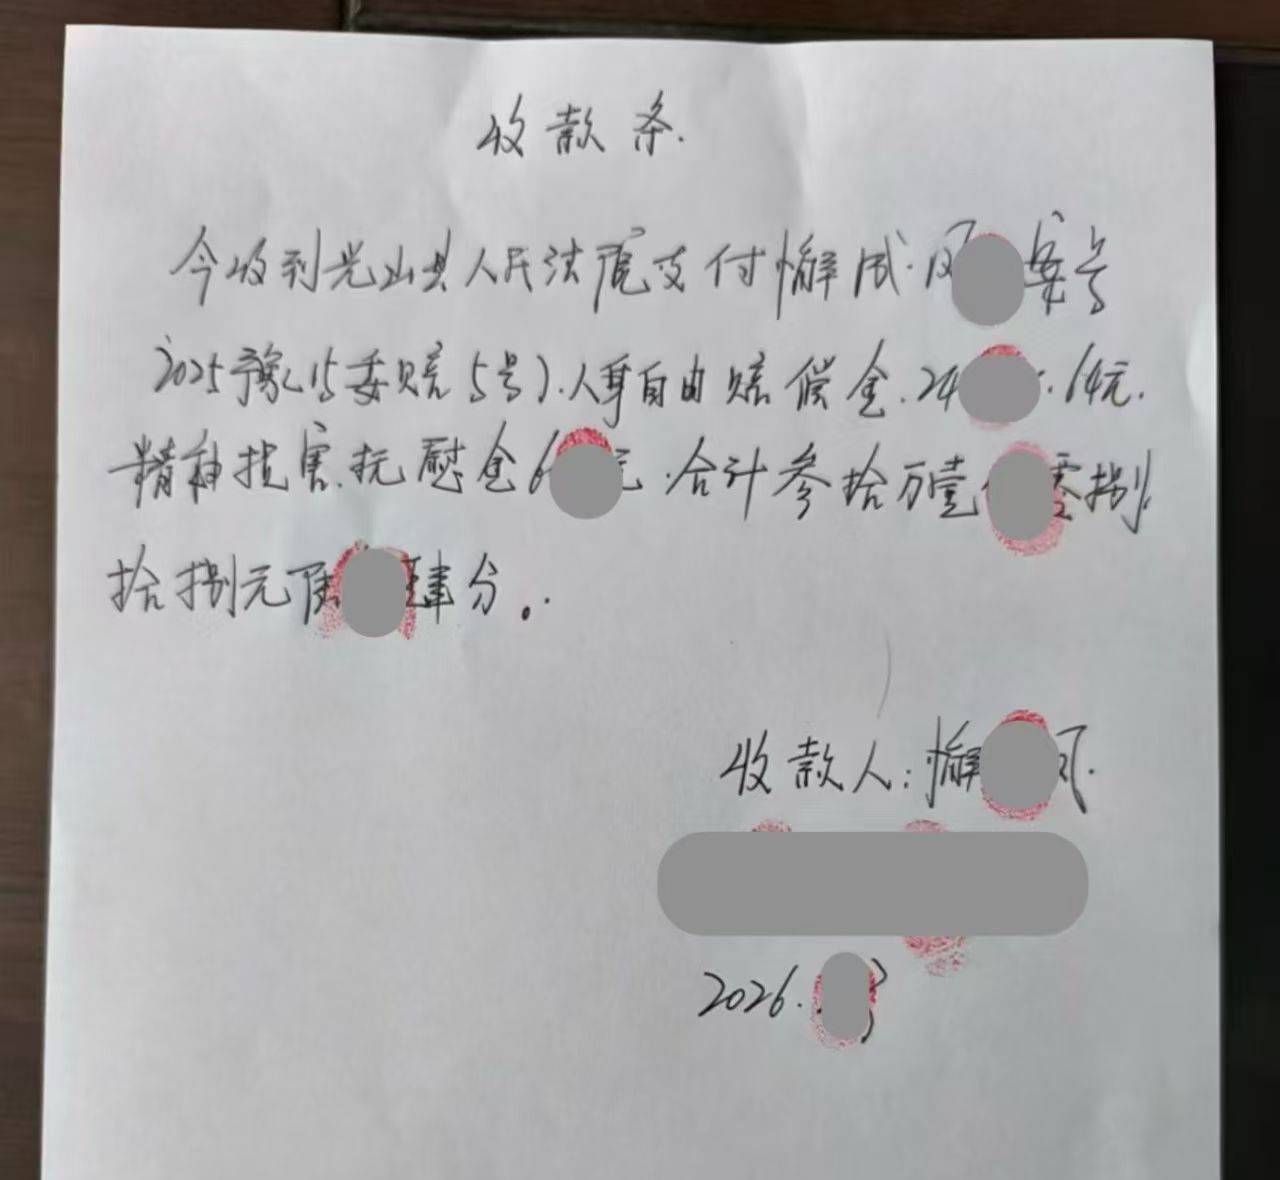 收款条.
今收到光山县人民法院支付懈成.凤 案号
2025豫15委赔5号).人身自由赔偿金.24 .64元.
精神损害.抚慰金6 元.合计参拾万壹 零捌
拾捌元陆 肆分。.
收款人:懈 凤.
2026. 3